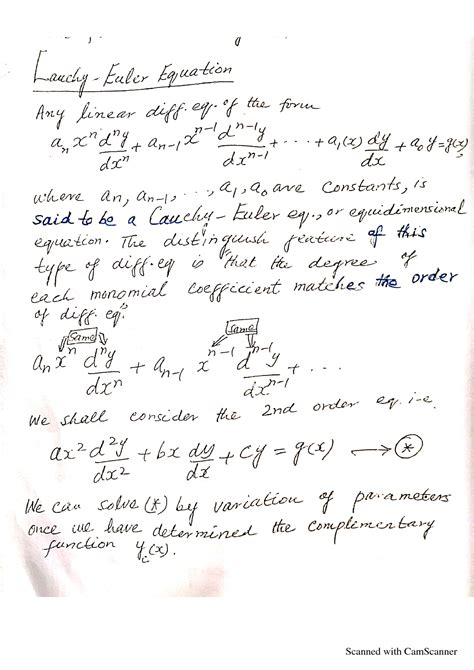 Cauchy-Euler Equation
Any linear diff. eq. of the form
aₙ xⁿ dⁿy/dxⁿ + aₙ₋₁ xⁿ⁻¹ dⁿ⁻¹y/dxⁿ⁻¹ + ... + a₁(x) dy/dx + a₀ y = g(x),
where aₙ, aₙ₋₁, ..., a₁, a₀ are constants, is
said to be a Cauchy-Euler eq., or equidimensional
equation. The distinguish feature of this
type of diff. eq is that the degree of
each monomial coefficient matches the order
of diff. eq:
Same Same
aₙ xⁿ dⁿy/dxⁿ + aₙ₋₁ xⁿ⁻¹ dⁿ⁻¹y/dxⁿ⁻¹ + ...
We shall consider the 2nd order eq. i-e.
ax² d²y/dx² + bx dy/dx + cy = g(x) → (*)
We can solve (*) by variation of parameters
once we have determined the complementary
function y_c(x).
Scanned with CamScanner